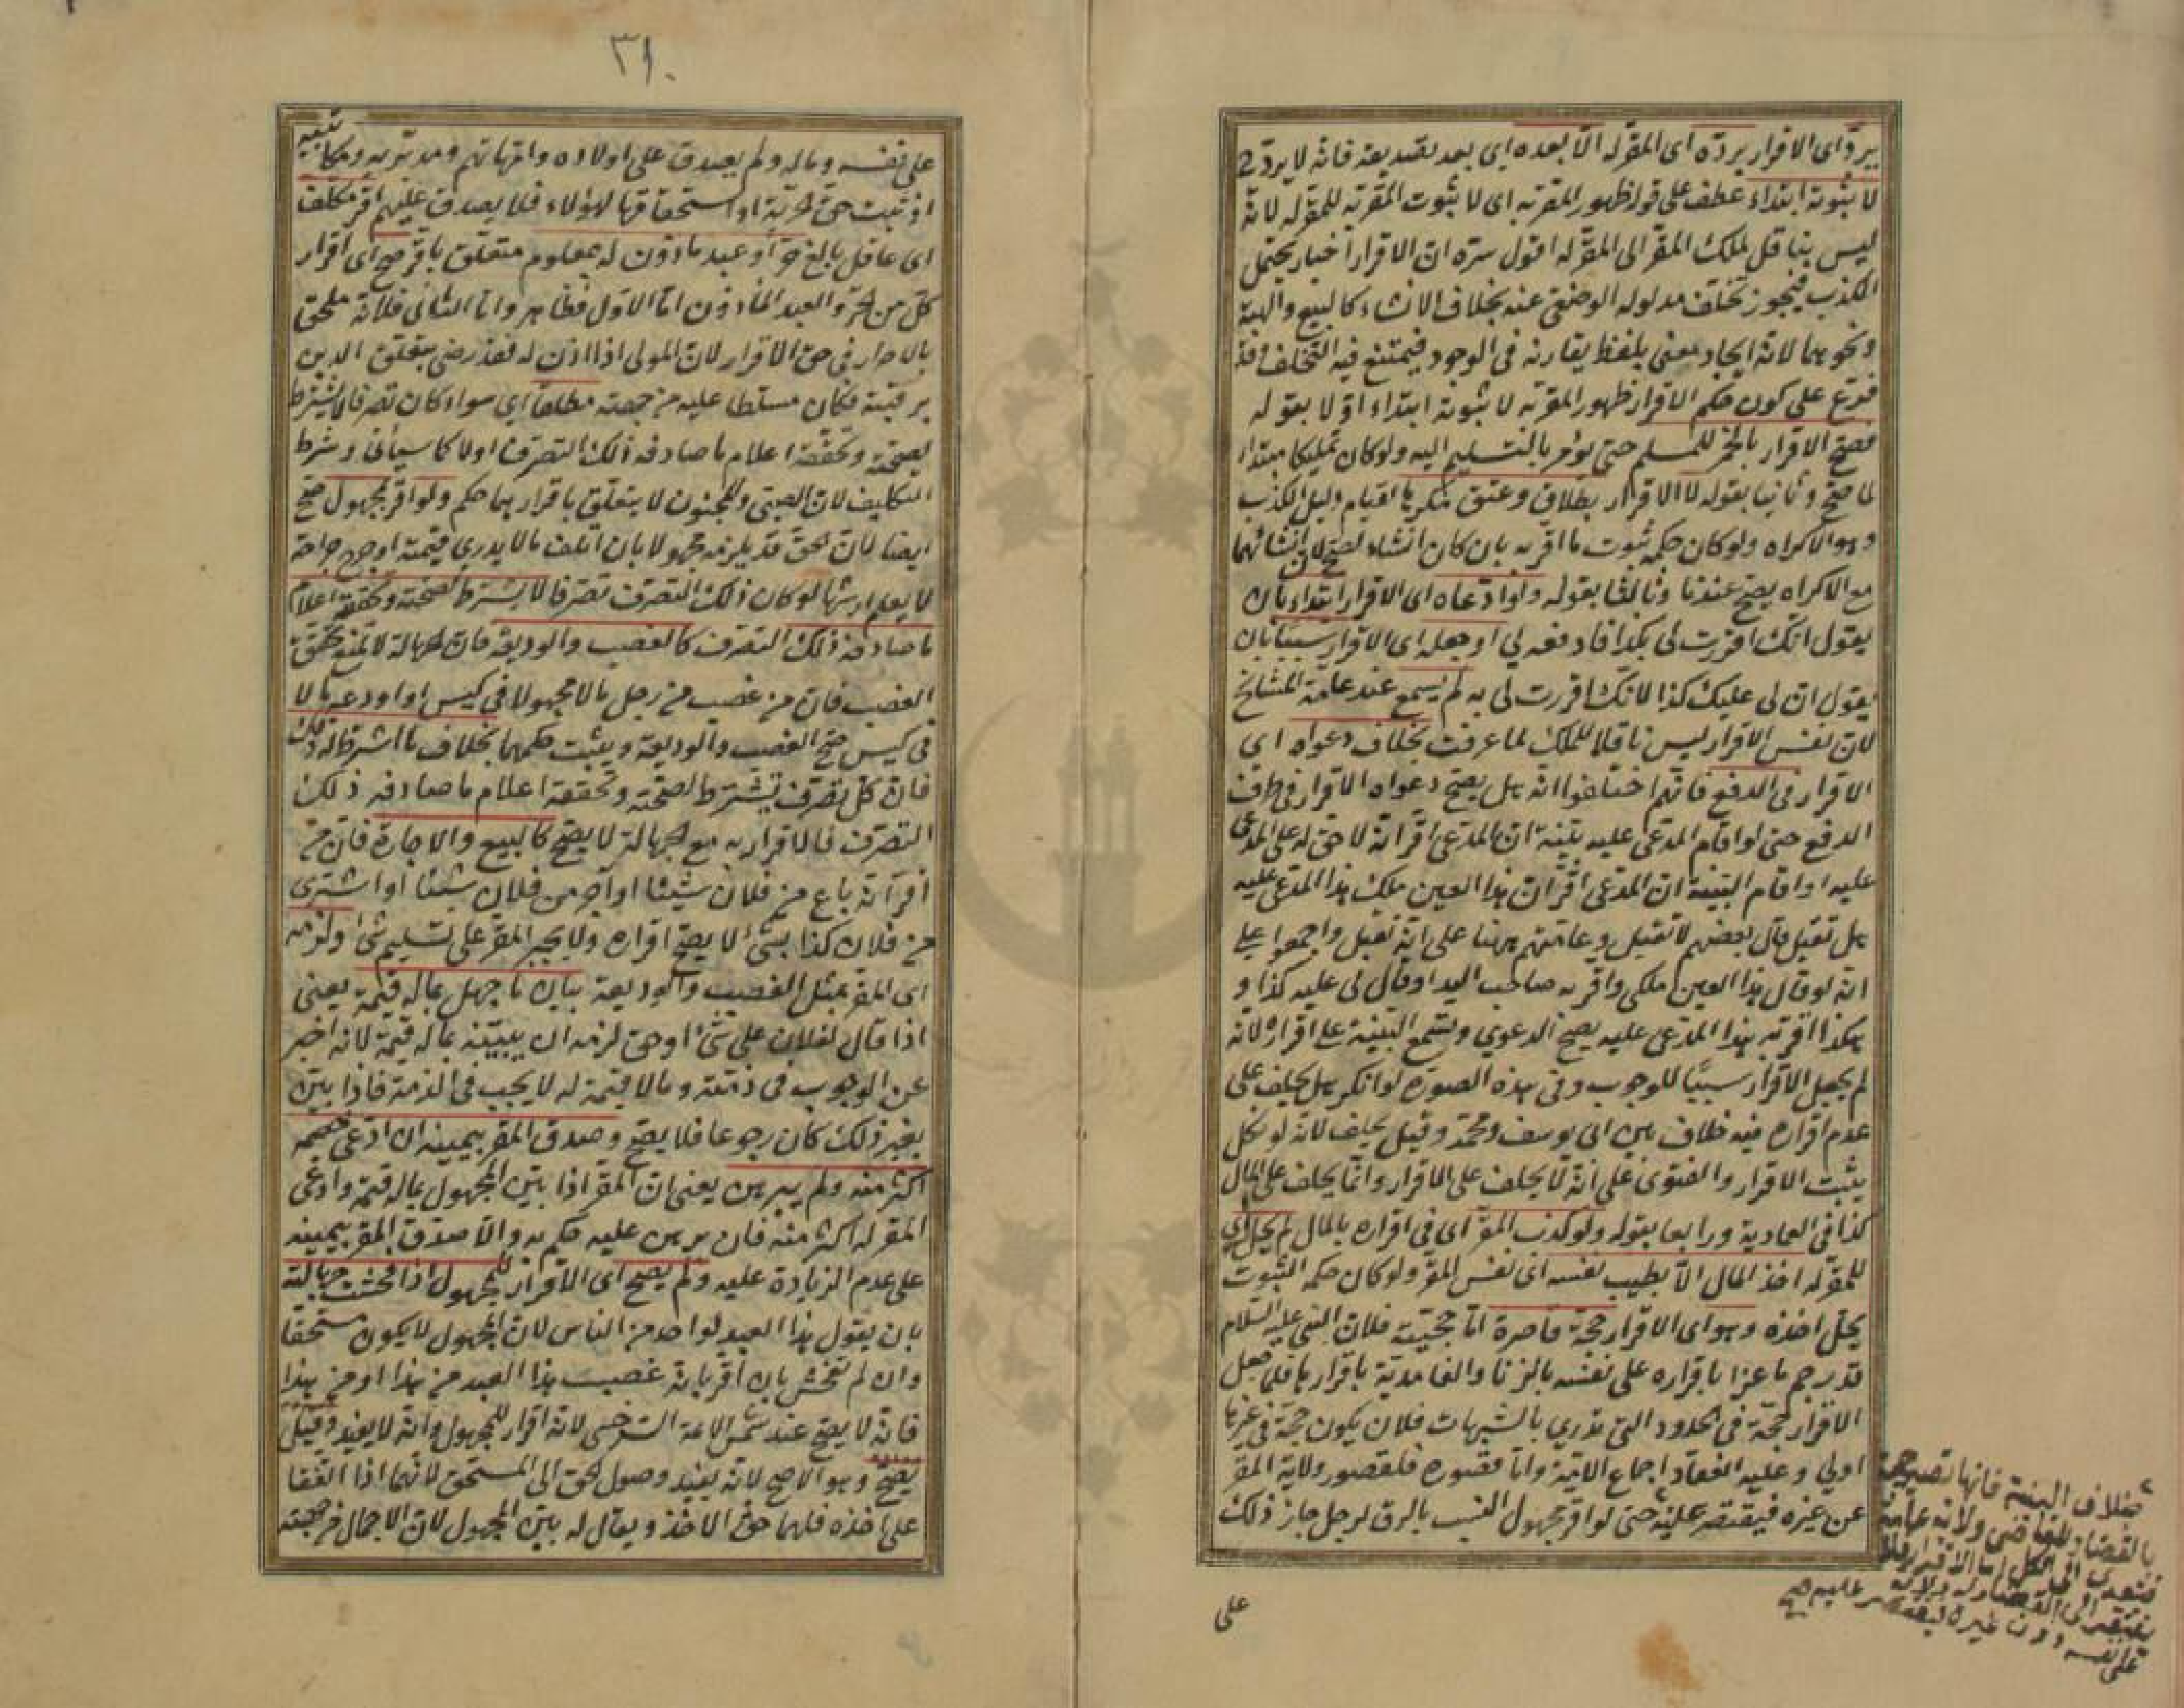 يردّ اى الاقرار بردّه اى المقرّ له الّا بعده اى بعد تصديقه فانّه لا يردّ ح
لا ثبوته ابتداء عطف على قوله ظهور المقرّ به اى لا ثبوت المقرّ به للمقرّ له لانّه
ليس بناقل لملك المقرّ الى المقرّ له اقول سرّه ان الاقرار اخبار يحتمل
الكذب فيجوز تخلّف مدلوله الوضعى عنه بخلاف الانشاء كالبيع والهبة
ونحوهما لانّه ايجاد معنى بلفظ يقارنه فى الوجود فيمتنع فيه التخلّف وقد
فرّع على كون حكم الاقرار ظهور المقرّ به لا ثبوته ابتداء اوّلا بقوله
فصحّ الاقرار بالخمر للمسلم حتى يؤمر بالتسليم اليه ولو كان تمليكا مبتدأ
لما صحّ وثانيا بقوله لا الاقرار بطلاق وعتق مكرها لقيام دليل الكذب
وهو الاكراه ولو كان حكمه ثبوت ما اقرّ به بان كان انشاء لصحّ لان انشائهما
مع الاكراه يصحّ عندنا وثالثا بقوله ولو ادّعاه اى الاقرار ابتداء بأن
يقول انّك اقررت لى بكذا فادفعه لى او جعله اى الاقرار سببا بان
يقول ان لى عليك كذا لانّك اقررت لى به لم يسمع عند عامّة المشايخ
لان نفس الاقرار ليس ناقلا للملك لما عرفت بخلاف دعواه اى
الاقرار فى الدفع فانّهم اختلفوا انّه هل يصحّ دعواه الاقرار فى طرف
الدفع حتى لو اقام المدّعى عليه بيّنة ان المدّعى اقرّ انّه لا حقّ له على المدّعى
عليه او اقام البيّنة ان المدّعى اقرّ ان هذا العين ملك هذا المدّعى عليه
هل تقبل قال بعضهم لا تقبل وعامّتهم ههنا على انّه تقبل واجمعوا على
انّه لو قال هذا العين ملكى واقرّ به صاحب اليد او قال لى عليه كذا و
هكذا اقرّ به هذا المدّعى عليه يصحّ الدعوى وتسمع البيّنة على اقراره لانّه
لم يجعل الاقرار سببا للوجوب وفى هذه الصورة لو انكر هل يحلف على
عدم اقراره فيه خلاف بين ابى يوسف ومحمّد وقيل يحلف لانّه لو نكل
يثبت الاقرار والفتوى على انّه لا يحلف على الاقرار وانّما يحلف على المال
كذا فى العمادية ورابعا بقوله ولو كذب المقرّ اى فى اقراره بالمال لم يحلّ اى
للمقرّ له اخذ المال الّا بطيب نفسه اى نفس المقرّ ولو كان حكمه الثبوت
يحلّ اخذه وهو اى الاقرار حجّة قاصرة امّا حجّيته فلان النبى عليه السلام
قد رجم ماعزا باقراره على نفسه بالزنا والغامدية باقرارها فلما جعل
الاقرار حجّة فى الحدود التى تدرى بالشبهات فلان يكون حجّة فى غيرها
اولى وعليه انعقد اجماع الامّة وامّا قصوره فلقصور ولاية المقرّ
عن غيره فيقتصر عليه حتى لو اقرّ مجهول النسب بالرق لرجل جاز ذلك
على
بخلاف البيّنة فانها تصير حجة
بالقضاء وللقاضى ولاية عامة
فتتعدى الى الكل اما الاقرار فلا
يفتقر الى القضاء وله ولاية
على نفسه دون غيره فيقتصر عليه صح
٣١٠
على نفسه وماله ولم يصدق على اولاده وامّهاتهم ومدبّريه ومكاتبيه
اذ ثبت حقّ الحرّية او استحقاقها لهؤلاء فلا يصدق عليهم اقرّ مكلّف
اى عاقل بالغ حرّ او عبد مأذون له بمعلوم متعلّق باقرّ صحّ اى اقرار
كلّ من الحرّ والعبد المأذون امّا الاوّل فظاهر وامّا الثانى فلانّه ملحق
بالاحرار فى حق الاقرار لان المولى اذا اذن له فقد رضى بتعلّق الدين
برقبته فكان مسلّطا عليه من جهته مطلقا اى سواء كان تصرفا لا يشترط
لصحّته وتحقّقه اعلام ما صادفه ذلك التصرف اولا كما سيأتى وشرط
التكليف لان الصبى والمجنون لا يتعلّق باقرارهما حكم ولو اقرّ بمجهول صحّ
ايضا لان الحقّ قد يلزمه مجهولا بان اتلف مالا يدرى قيمته او جرح جراحة
لا يعلم ارشها لو كان ذلك التصرف تصرفا لا يشترط لصحّته وتحقّقه اعلام
ما صادفه ذلك التصرف كالغصب والوديعة فان الجهالة لا تمنع تحقّق
الغصب فان من غصب من رجل مالا مجهولا فى كيس او اودعه مالا
فى كيس صحّ الغصب والوديعة ويثبت حكمهما بخلاف ما اشترط له ذلك
فان كلّ تصرف يشترط لصحّته وتحقّقه اعلام ما صادفه ذلك
التصرف فالاقرار به مع الجهالة لا يصحّ كالبيع والاجارة فان من
اقرّ انّه باع من فلان شيئا او آجر من فلان شيئا او اشترى
من فلان كذا بشئ لا يصحّ اقراره ولا يجبر المقرّ على تسليم شئ ولزمه
اى المقرّ بمثل الغصب والوديعة بيان ما جهل بماله قيمة يعنى
اذا قال لفلان علىّ شئ او حقّ لزمه ان يبيّنه بماله قيمة لانه اخبر
عن الوجوب فى ذمّته وما لا قيمة له لا يجب فى الذمة فاذا بيّن
بغير ذلك كان رجوعا فلا يصحّ وصدق المقرّ بيمينه ان ادّعى خصمه
اكثر منه ولم يبرهن يعنى ان المقرّ اذا بيّن المجهول بماله قيمة وادّعى
المقرّ له اكثر منه فان برهن عليه حكم به والّا صدق المقرّ بيمينه
على عدم الزيادة عليه ولم يصحّ اى الاقرار للمجهول اذا فحشت جهالته
بان يقول هذا العبد لواحد من الناس لان المجهول لا يكون مستحقّا
وان لم تفحش بان اقرّ بانّه غصب هذا العبد من هذا او من هذا
فانّه لا يصحّ عند شمس الائمة السرخسى لانّه اقرار للمجهول وانّه لا يفيد وقيل
يصحّ وهو الاصح لانّه يفيد وصول الحق الى المستحق لانّهما اذا اتّفقا
على اخذه فلهما حقّ الاخذ ويقال له بيّن المجهول لان الاجمال من جهته